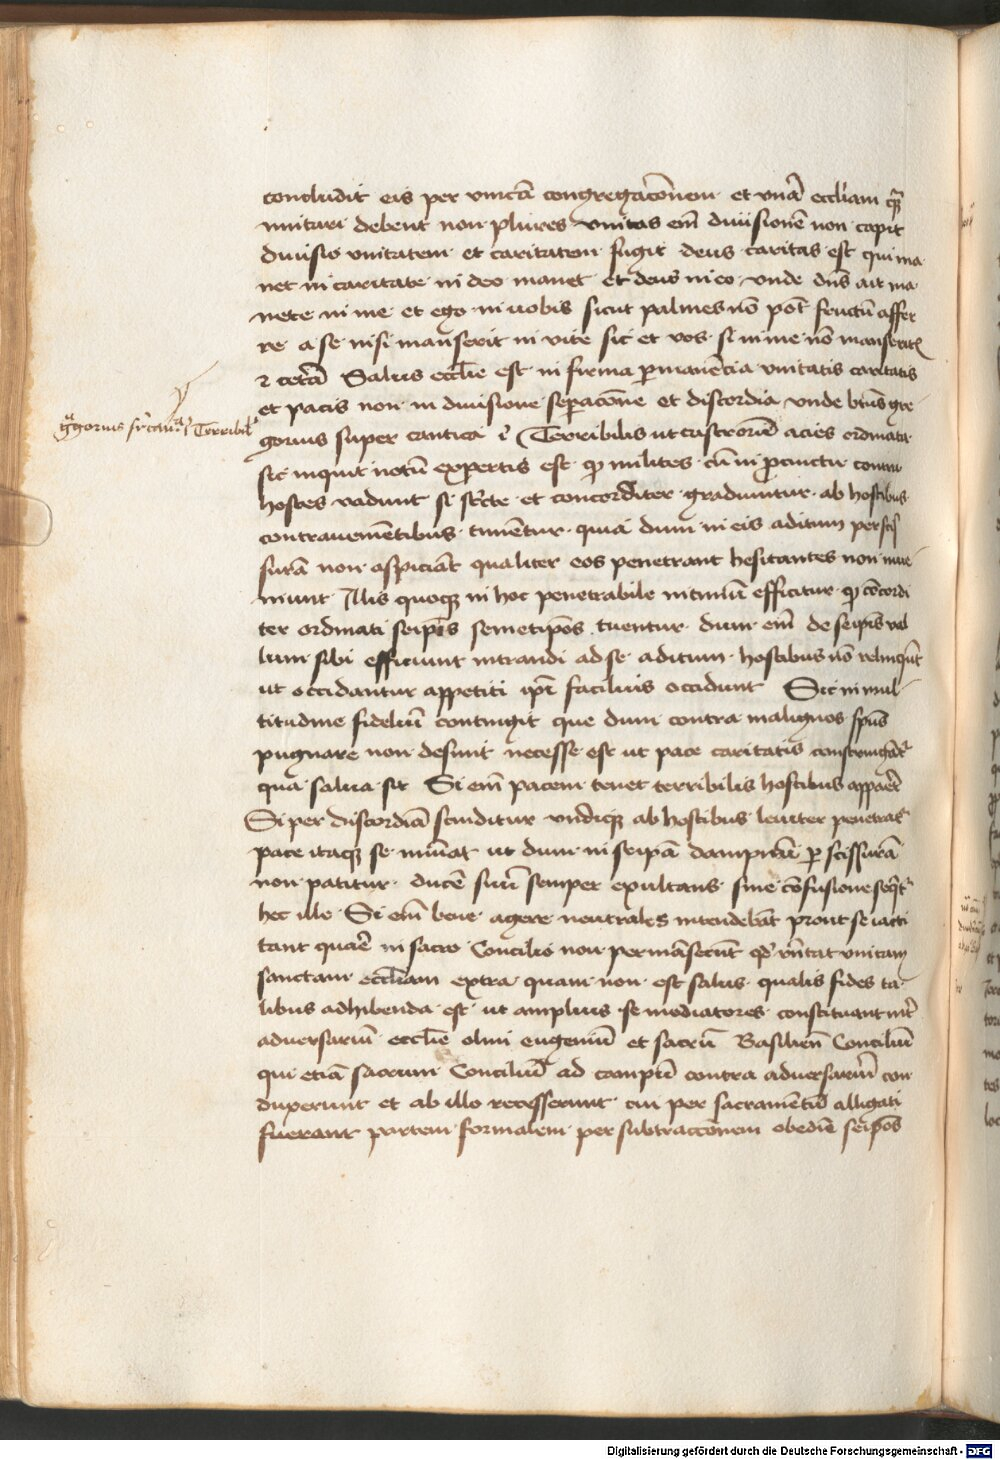 concludit eis per vnicā congregacōnem et vnā eccliam
imitari debent non plures vnitas em̄ diuisionē non capit
diuisio vnitatem et caritatem fugit deus caritas est qui ma
net in caritate in deo manet et deus in eo vnde dn̄s ait ma
nete in me et ego in vobis sicut palmes nō pot̄ fructū affer
re a se nisi manserit in vite sic et vos si in me nō manseritꝭ
⁊ cetera Salus ecclīe est in firma ꝑmanēcia vnitatis caritatis
et pacis non in diuisione seperacōne et discordia vnde btūs gre
gorius super cantica Terribilis ut castrorū acies ordinata
sic inquit notū expertis est qꝫ milites cū in ꝓcinctu contra
hostes vadunt si stricte et concorditer gradiuntur ab hostibus
contrauenientibus timētur quia dum in eis aditum per scis
surā non aspiciāt qualiter eos penetrant hesitantes non inue
niunt Illis quoqꝫ in hoc penetrabile efficitur qꝫ cōcordi
ter ordinati seip̄is semetip̄os tuentur dum em̄ de seip̄is val
lum sibi efficiunt intrandi ad se aditum hostibus nō relinqūt
ut occidantur appetiti ip̄i facilius occidunt Sic in mul
titudine fideliū contingit que dum contra malignos spūs
pugnare non desinit necesse est ut pace caritatis constringāt᷑
qua salua sit Si em̄ pacem tenet terribilis hostibus apparet
Si per discordiā scinditur vndiqꝫ ab hostibus leuiter penetrat᷑
pace itaqꝫ se muniat ut dum in seipā dampnū ꝑ scissurā
non patitur ducē suū semper exultans sine cōfusione seqt᷑
hec ille Si em̄ bene agere neutrales intendebāt prout se iacti
tant quare in sacro Concilio non permāserūt qd̄ rn̄tat vnitam
sanctam eccliam extra quam non est salus qualis fides ta
libus adhibenda est ut amplius se mediatores constituant int̄
aduersariū ecclīe olim eugeniū et sacrū Basilien̄ Conciliū
qui etiā sacrum Conciliū ad contra aduersariū con
duxerunt et ab illo recesserunt cui per sacramentū alligati
fuerant partem formalem per subtraccōnem obediē seip̄os
Ggorius sr̄ cantica Terribilꝭ
Digitalisierung gefördert durch die Deutsche Forschungsgemeinschaft - DFG